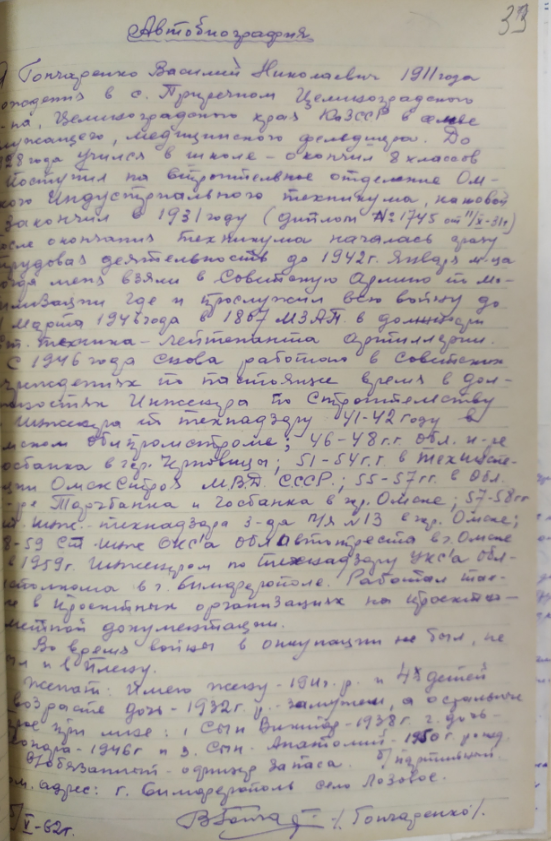 33
Автобиография
Я Гончаренко Василий Николаевич 1911 года
рождения в с. Приречном Целиноградского
р-на, Целиноградского края КазССР в семье
служащего, медицинского фельдшера. До
1928 года учился в школе - окончил 8 классов
поступил на строительное отделение Ом-
ского Индустриального техникума, каковой
закончил в 1931 году (диплом № 1745 от 11/X-31г)
после окончания техникума началась сразу
трудовая деятельность до 1942 г. Января м-ца
когда меня взяли в Советскую Армию по мо-
билизации где и прослужил всю войну до
Марта 1946 года в 1867 МЗАП в должности
ст. техника-лейтенанта артиллерии.
С 1946 года снова работаю в Советских
учреждениях по настоящее время в дол-
жностях Инженера по Строительству
Инженера по технадзору 41-42 году в
Омском облпромстроме; 46-48 г.г. Обл. к-ре
Госбанка в гор. Черновицы; 51-54 г.г. в техинспе-
кции ОмскСтроя МВД СССР; 55-57 гг. в Обл.
к-ре Торгбанка и Госбанка в гор. Омске; 57-58 гг
ст. инж. технадзора з-да п/я №13 в гор. Омске;
58-59 Ст инж ОКС'а Облавтотреста в г. Омске
в 1959 г. Инженером по технадзору УКС'а Обл-
исполкома в г. Симферополе. Работал так-
же в проектных организациях на проектно-
сметной документации.
Во время войны в оккупации не был, не
был и в плену.
Женат: Имею жену - 1911 г. р. и 4х детей
возрасте дочь - 1932 г. р. замужем, а остальные
трое при мне: 1 Сын Виктор - 1938 г. 2. дочь-
1946 г и 3. Сын. Анатолий - 1950 г. рожд.
В/обязанный - офицер запаса. б/партийный.
Дом. адрес: г. Симферополь село Лозовое.
X-62 г.
/Гончаренко/.